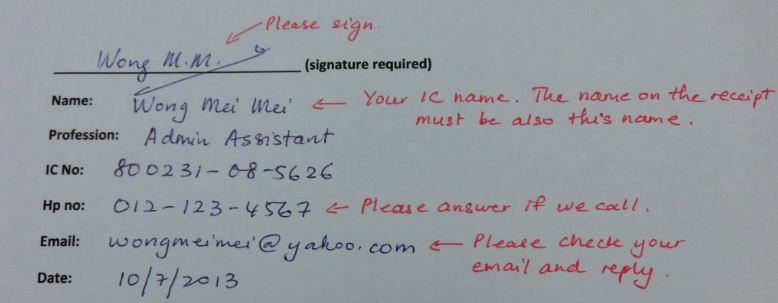 Please sign.
Wong M.M. (signature required)
Name: Wong Mei Mei ← Your IC name. The name on the receipt
must be also this name.
Profession: Admin Assistant
IC No: 800231-08-5626
Hp no: 012-123-4567 ← Please answer if we call.
Email: wongmeimei@yahoo.com ← Please check your
email and reply.
Date: 10/7/2013